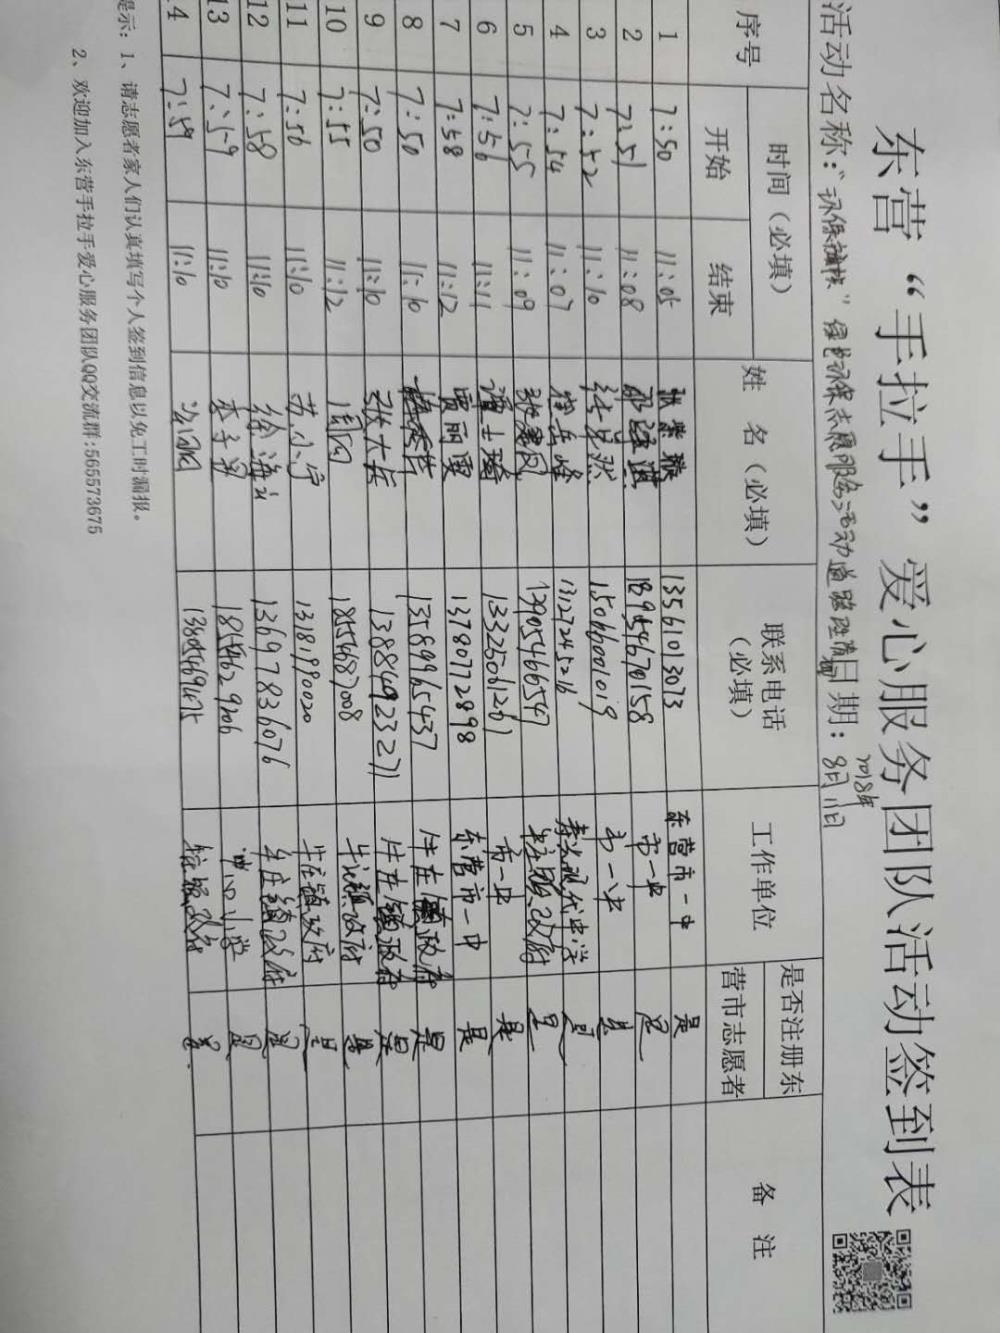 东营“手拉手”爱心服务团队活动签到表
活动名称：“环保 ” 保志愿服务活动道路 清 日期：2018年8月11日
序号 时间（必填） 姓 名（必填） 联系电话（必填） 工作单位 是否注册东营市志愿者 备 注
开始 结束
1 7:50 11:05 13561013073 东营市一中 是
2 7:51 11:08 18954670158 市一中 是
3 7:52 11:10 15066001019 市一中 是
4 7:54 11:07 崔岳峰 13127245216 现代中学
5 7:55 11:09 镇政府 是
6 7:56 11:11 13325061261 市一中 是
7 7:58 11:12 贾丽雯 13780772898 东营市一中 是
8 7:50 11:10 13589965437 牛庄镇政府 是
9 7:50 11:10 张大兵 13884923271 牛庄镇政府 是
10 7:55 11:12 18554687008 牛庄镇政府 是
11 7:56 11:10 苏小宁 13181990020 牛庄镇政府 是
12 7:58 11:10 徐海 13697836076 牛庄镇政府 是
13 7:59 11:10 李子 18154629206 小学 是
14 7:59 11:10 镇政府 是
提示：1、请志愿者家人们认真填写个人签到信息以免工时漏报。
2、欢迎加入东营手拉手爱心服务团队QQ交流群:565573675